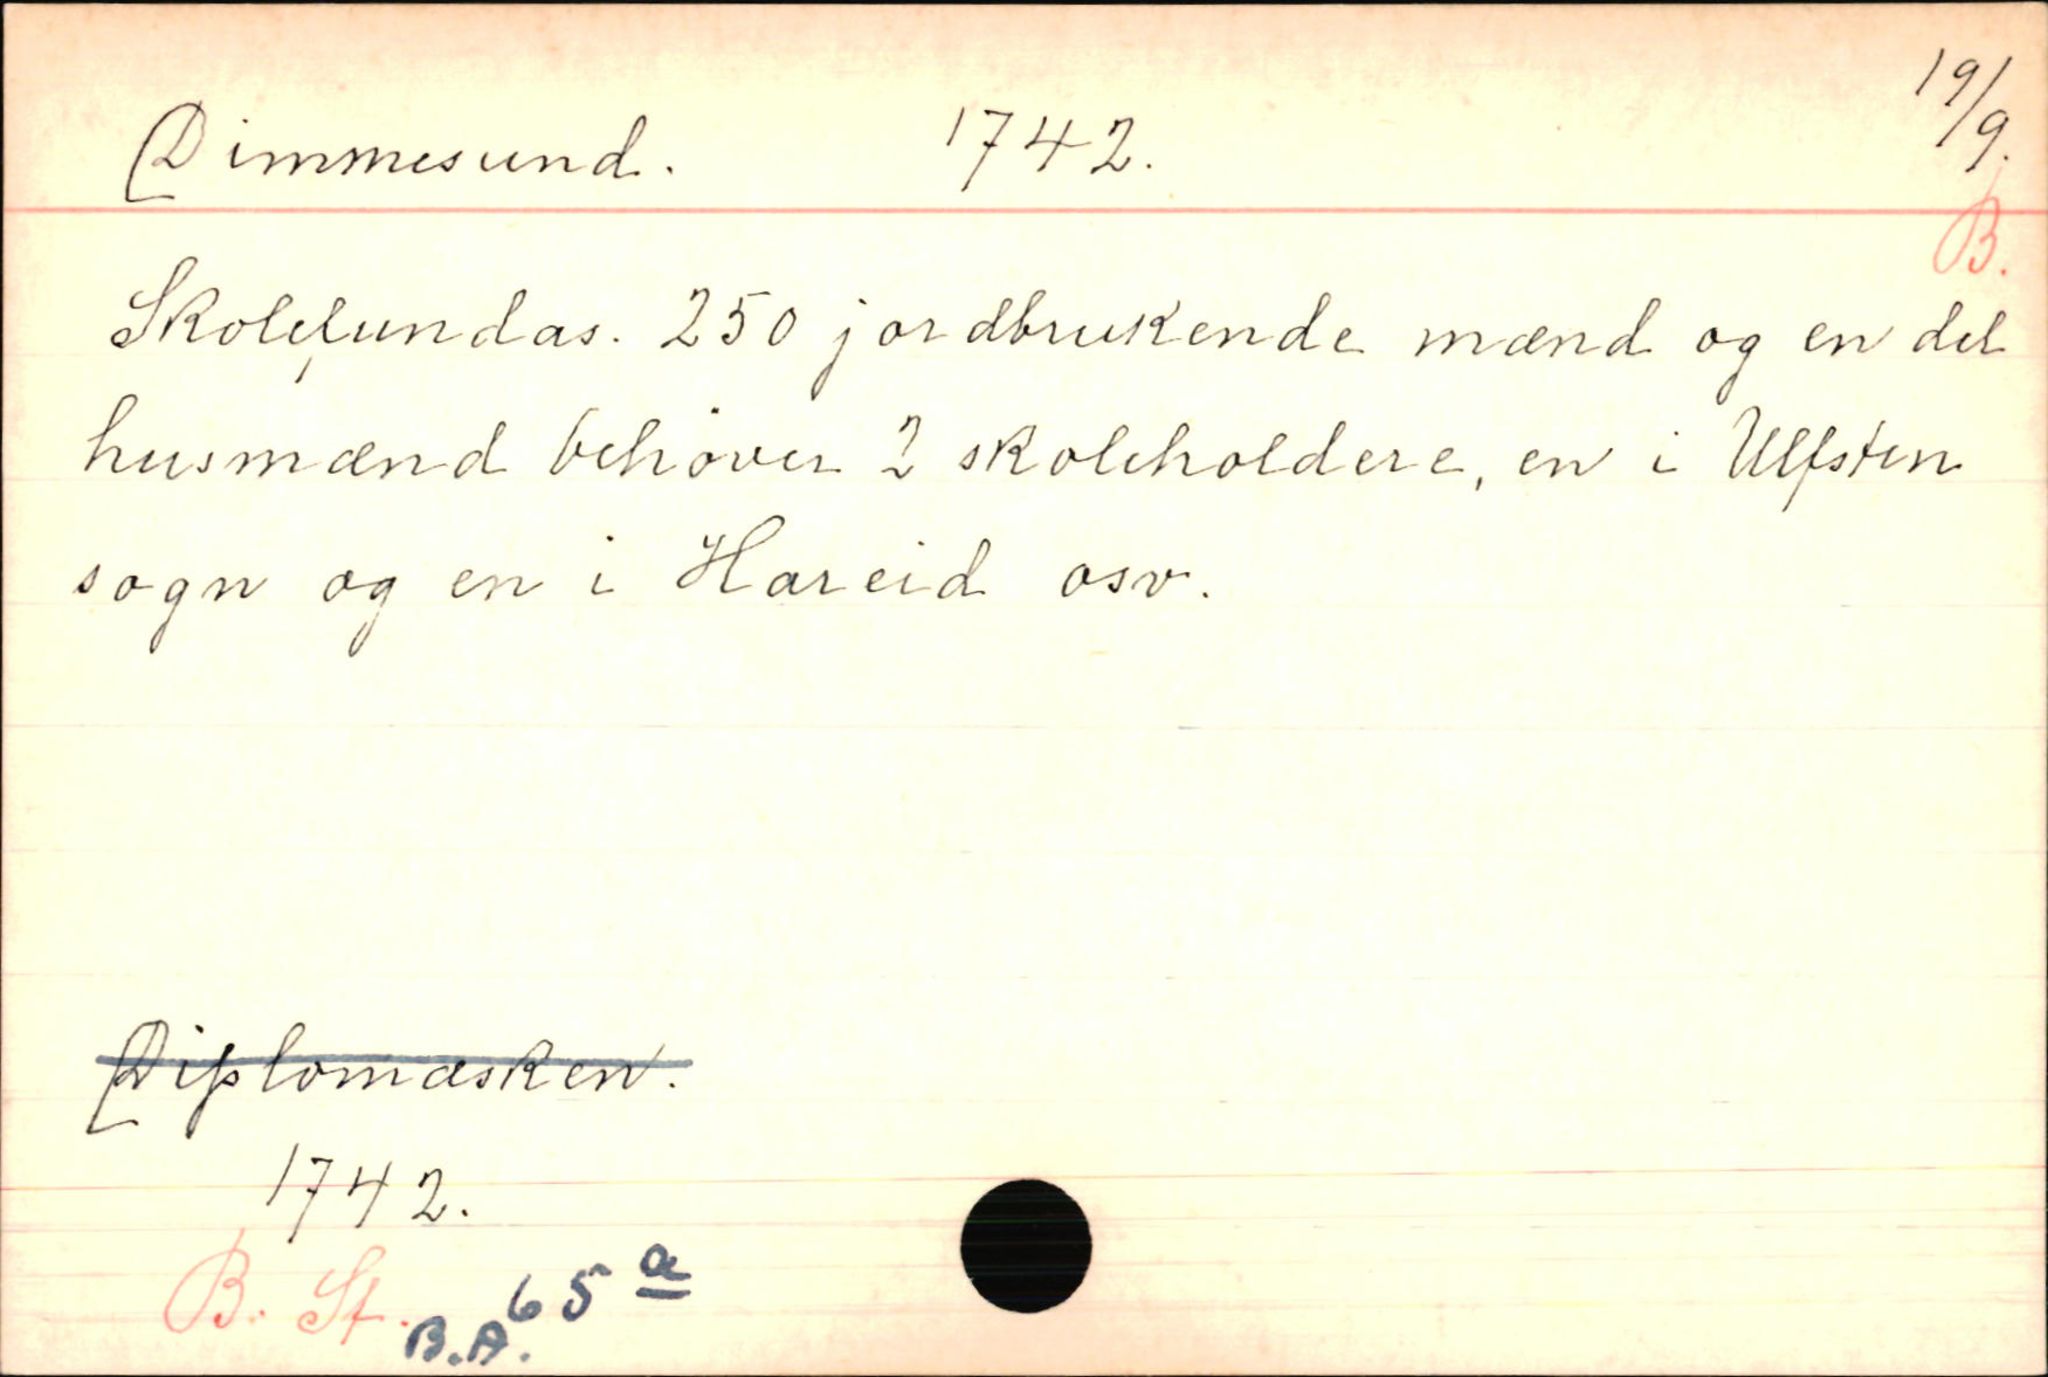 Dimmesund. 1742. 19/9.
B.
Skolefundas. 250 jordbrukende mænd og en del
husmænd behøver 2 skoleholdere, en i Ulfsten
sogn og en i Hareid osv.
Diplomæsken.
1742.
B. St. B.A. 65 a